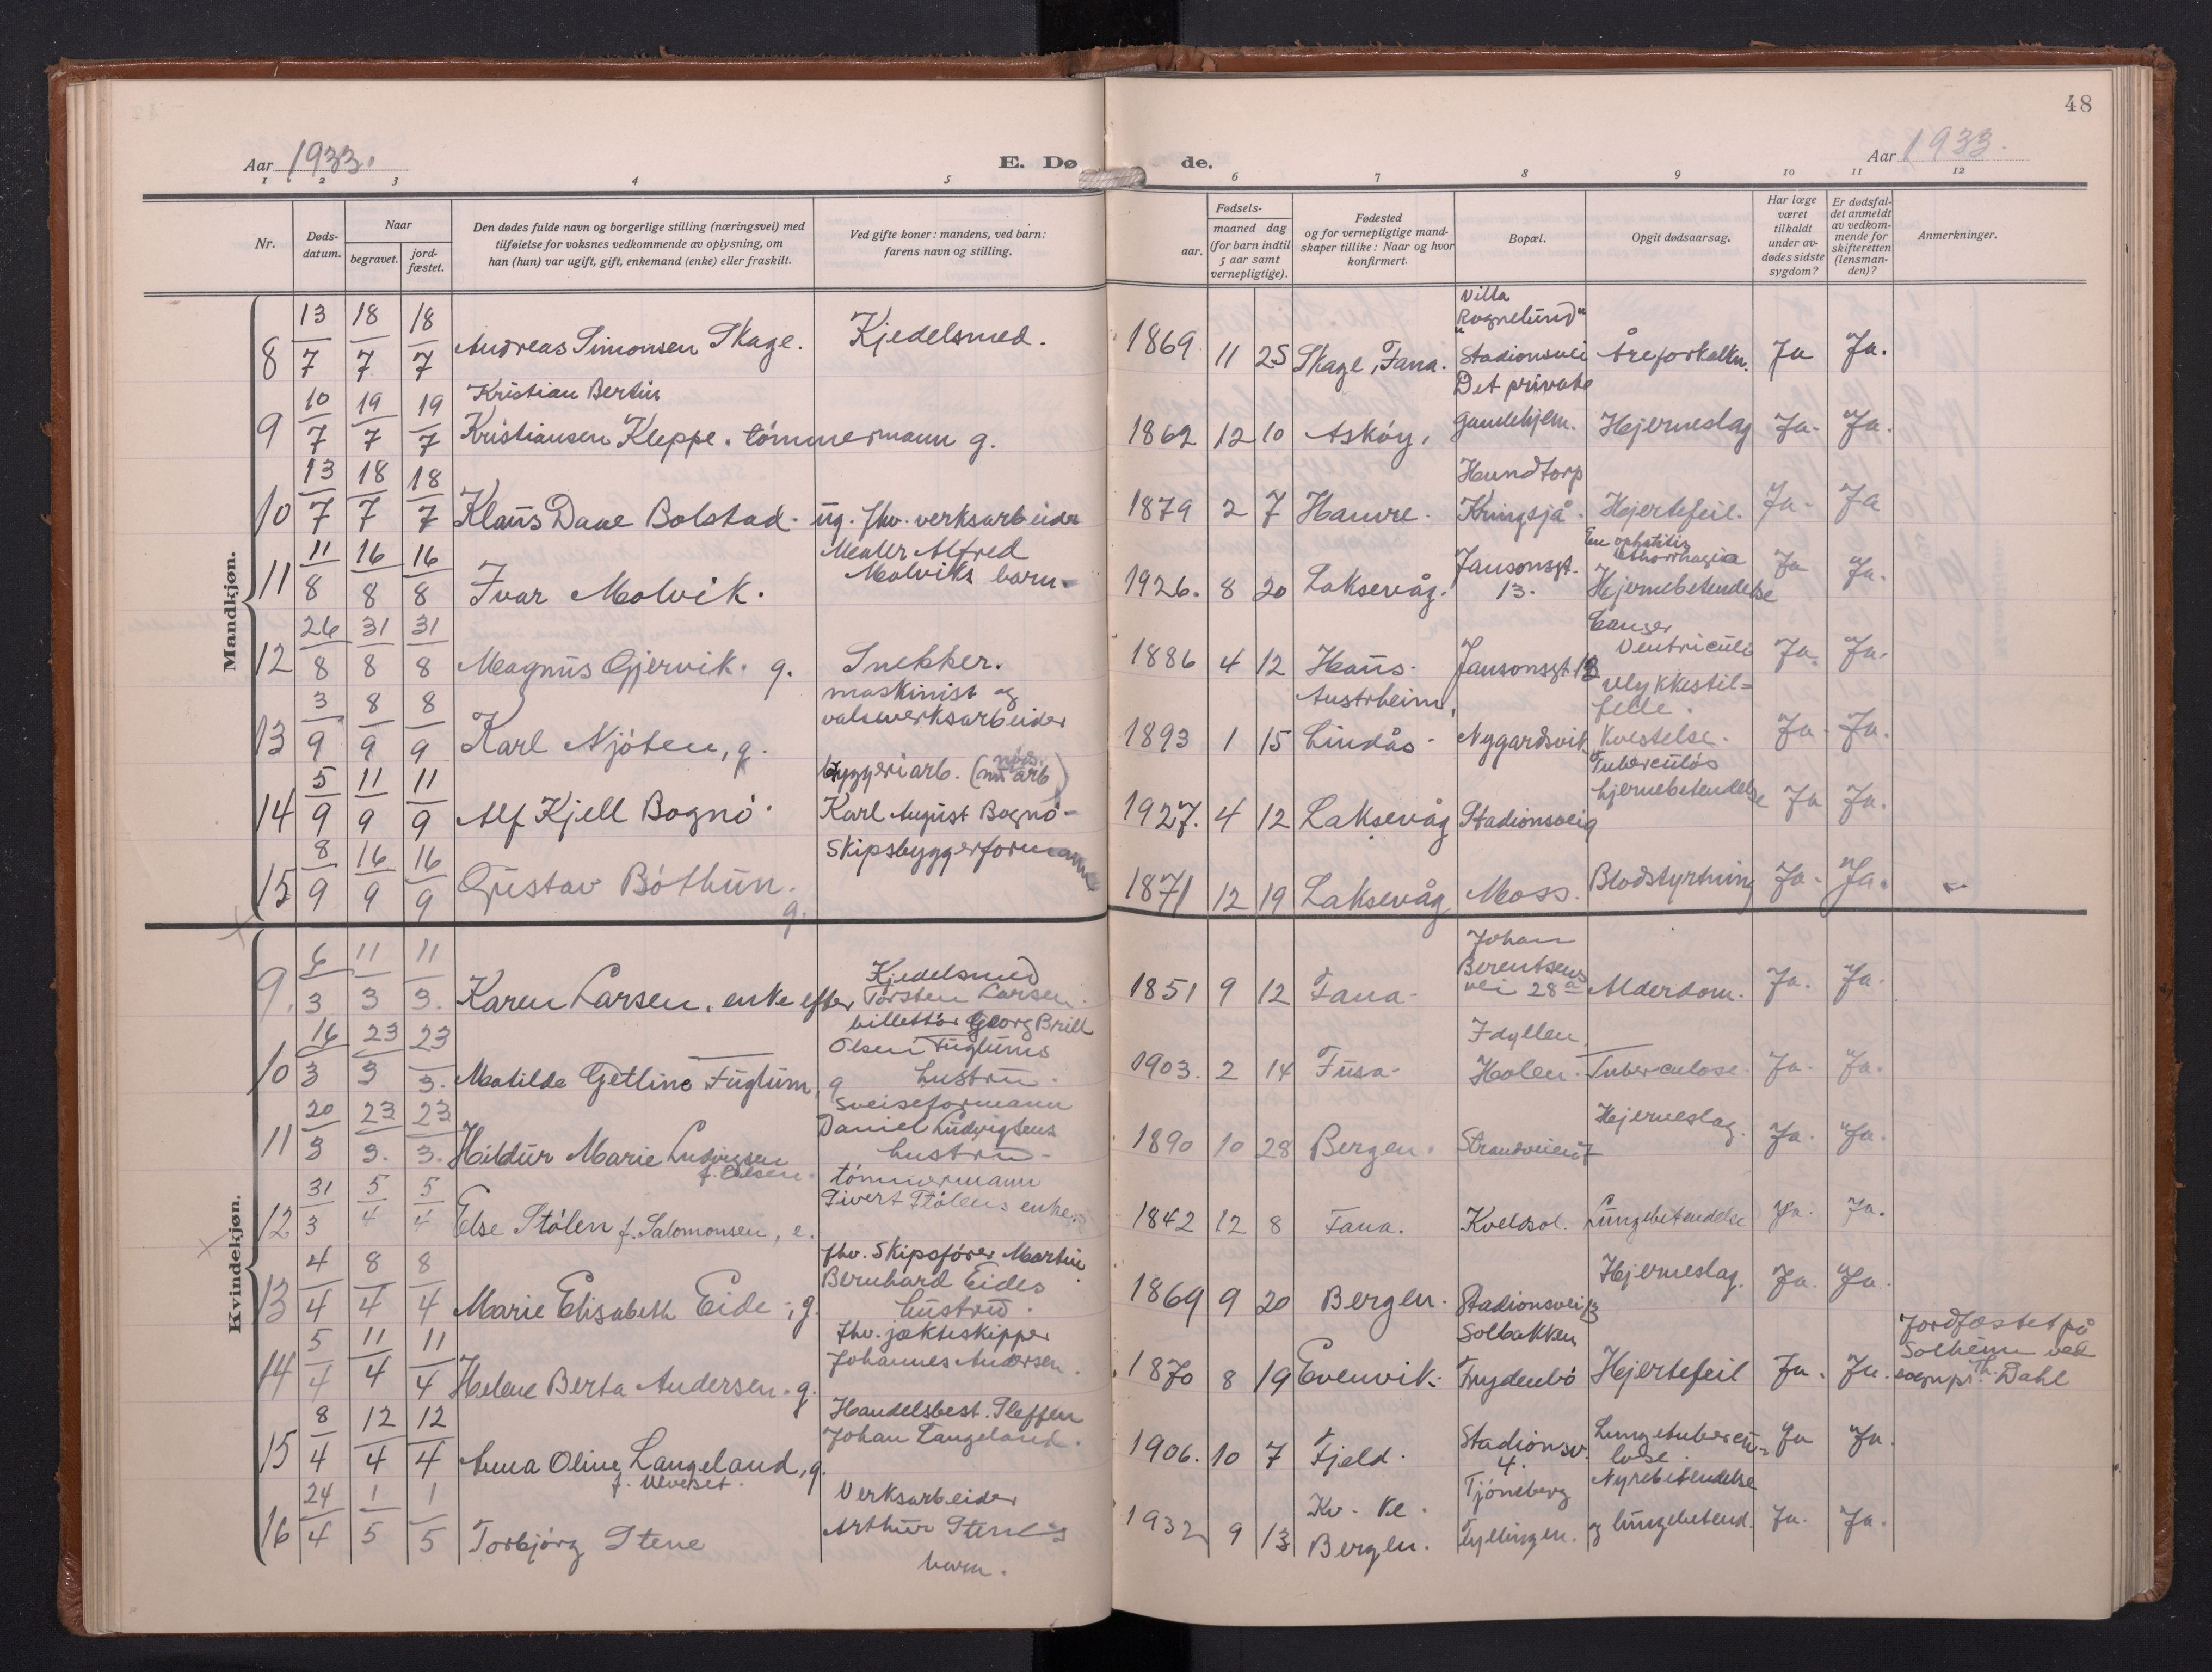 48
Aar 1933.
E. Dø de.
Aar 1933.
1 2 3 4 5 6 7 8 9 10 11 12
Nr.
Døds-datum.
Naar
begravet.
jord-fæstet.
Den dødes fulde navn og borgerlige stilling (næringsvei) med
tilføielse for voksnes vedkommende av oplysning, om
han (hun) var ugift, gift, enkemand (enke) eller fraskilt.
Ved gifte koner: mandens, ved barn:
farens navn og stilling.
Fødsels-
aar.
maaned dag
(for barn indtil
5 aar samt
vernepligtige).
Fødested
og for vernepligtige mand-
skaper tillike: Naar og hvor
konfirmert.
Bopæl.
Opgit dødsaarsag.
Har læge
været
tilkaldt
under av-
dødes sidste
sygdom?
Er dødsfal-
det anmeldt
av vedkom-
mende for
skifteretten
(lensman-
den)?
Anmerkninger.
Mandkjøn.
8 13/7 18/7 18/7 Andreas Simonsen Skage. Kjedelsmed. 1869 11 25 Skage, Fana. Villa "Rognelund" Stadionsvei Åreforkalkn. Ja Ja.
9 10/7 19/7 19/7 Kristian Bertin
Kristiansen Kleppe. tömmermann g. 1862 12 10 Asköy, Det private gamlehjem. Hjerneslag Ja. Ja.
10 13/7 18/7 18/7 Klaus Daae Bolstad. ug. fhv. verksarbeider 1879 2 7 Hamre. Hundtorp Kringsjå. Hjertefeil. Ja. Ja
11 11/8 16/8 16/8 Ivar Molvik. Maler Alfred
Molviks barn. 1926. 8 20 Laksevåg. Jansonsgt. 13. Hjernebetendelse Ja Ja.
12 26/8 31/8 31/8 Magnus Gjervik. g. Snekker. 1886 4 12 Haus. Jansonsgt. Cancer Ventriculi Ja. Ja.
13 3/9 8/9 8/9 Karl Njöten, g. maskinist og
valseverksarbeider 1893 1 15 Austrheim, Lindås. Nygardsvik Ulykkestil-
felle.
Kvestelse. Ja. Ja.
14 5/9 11/9 11/9 Alf Kjell Bognö. byggeriarb. (nu nøds. arb)
Karl August Bognö. 1927. 4 12 Laksevåg Stadionsvei 9 Tuberculös
hjernebetendelse Ja Ja.
15 8/9 16/9 16/9 Gustav Böthun. g. Skipsbyggerformann 1871 12 19 Laksevåg Moss. Blodstyrtning Ja. Ja.
Kvindekjøn.
9. 6/3 11/3 11/3. Karen Larsen, enke efter Kjedelsmed
Torsten Larsen. 1851 9 12 Fana. Johan
Berentsens
vei 28a Alderdom. Ja. Ja.
10 16/3 23/3 23/3. Matilde Getline Fuglum, g billettör Georg Brill
Olsen Fuglums
hustru. 1903. 2 14 Fusa. Idyllen,
Holen. Tuberculose. Ja. Ja.
11 20/3 23/3. 23/3. Hildur Marie Ludvigsen
f. Olsen. sveiseformann
Daniel Ludvigsens
hustru. 1890 10 28 Bergen. Strandveien 7 Hjerneslag. Ja. Ja.
12 31/3 5/4 5/4 Else Stölen f. Salomonsen, e. tömmermann
Sivert Stölens enke. 1842 12 8 Fana. Kveldsol. Lungebetendelse Ja. Ja.
13 4/4 8/4 8/4 Marie Elisabeth Eide., g. fhv. Skipsförer Martin
Bernhard Eides
hustru. 1869 9 20 Bergen. Stadionsvei 13 Hjerneslag. Ja. Ja.
14 5/4 11/4 11/4 Helene Berta Andersen. g. fhv. jækteskipper
Johannes Andersen. 1870 8 19 Evenvik. Solbakken
Frydenbö Hjertefeil Ja. Ja. Jordfæstet på
Solheim ved
sognepr. Th. Dahl
15 8/4 12/4 12/4 Anna Oline Langeland, g.
f. Ulveset. Handelsbest. Steffen
Johan Langeland. 1906. 10 7 Fjeld. Stadionsv.
4. Lungetubercu-
lose. Ja Ja.
16 24/4 1/5 1/5 Torbjörg Stene Verksarbeider
Arthur Stenes
barn. 1932 9 13 Kv. Kl.
Bergen. Tjöneberg
Fyllingen. Nyrebetendelse
og lungebetend. Ja. Ja.